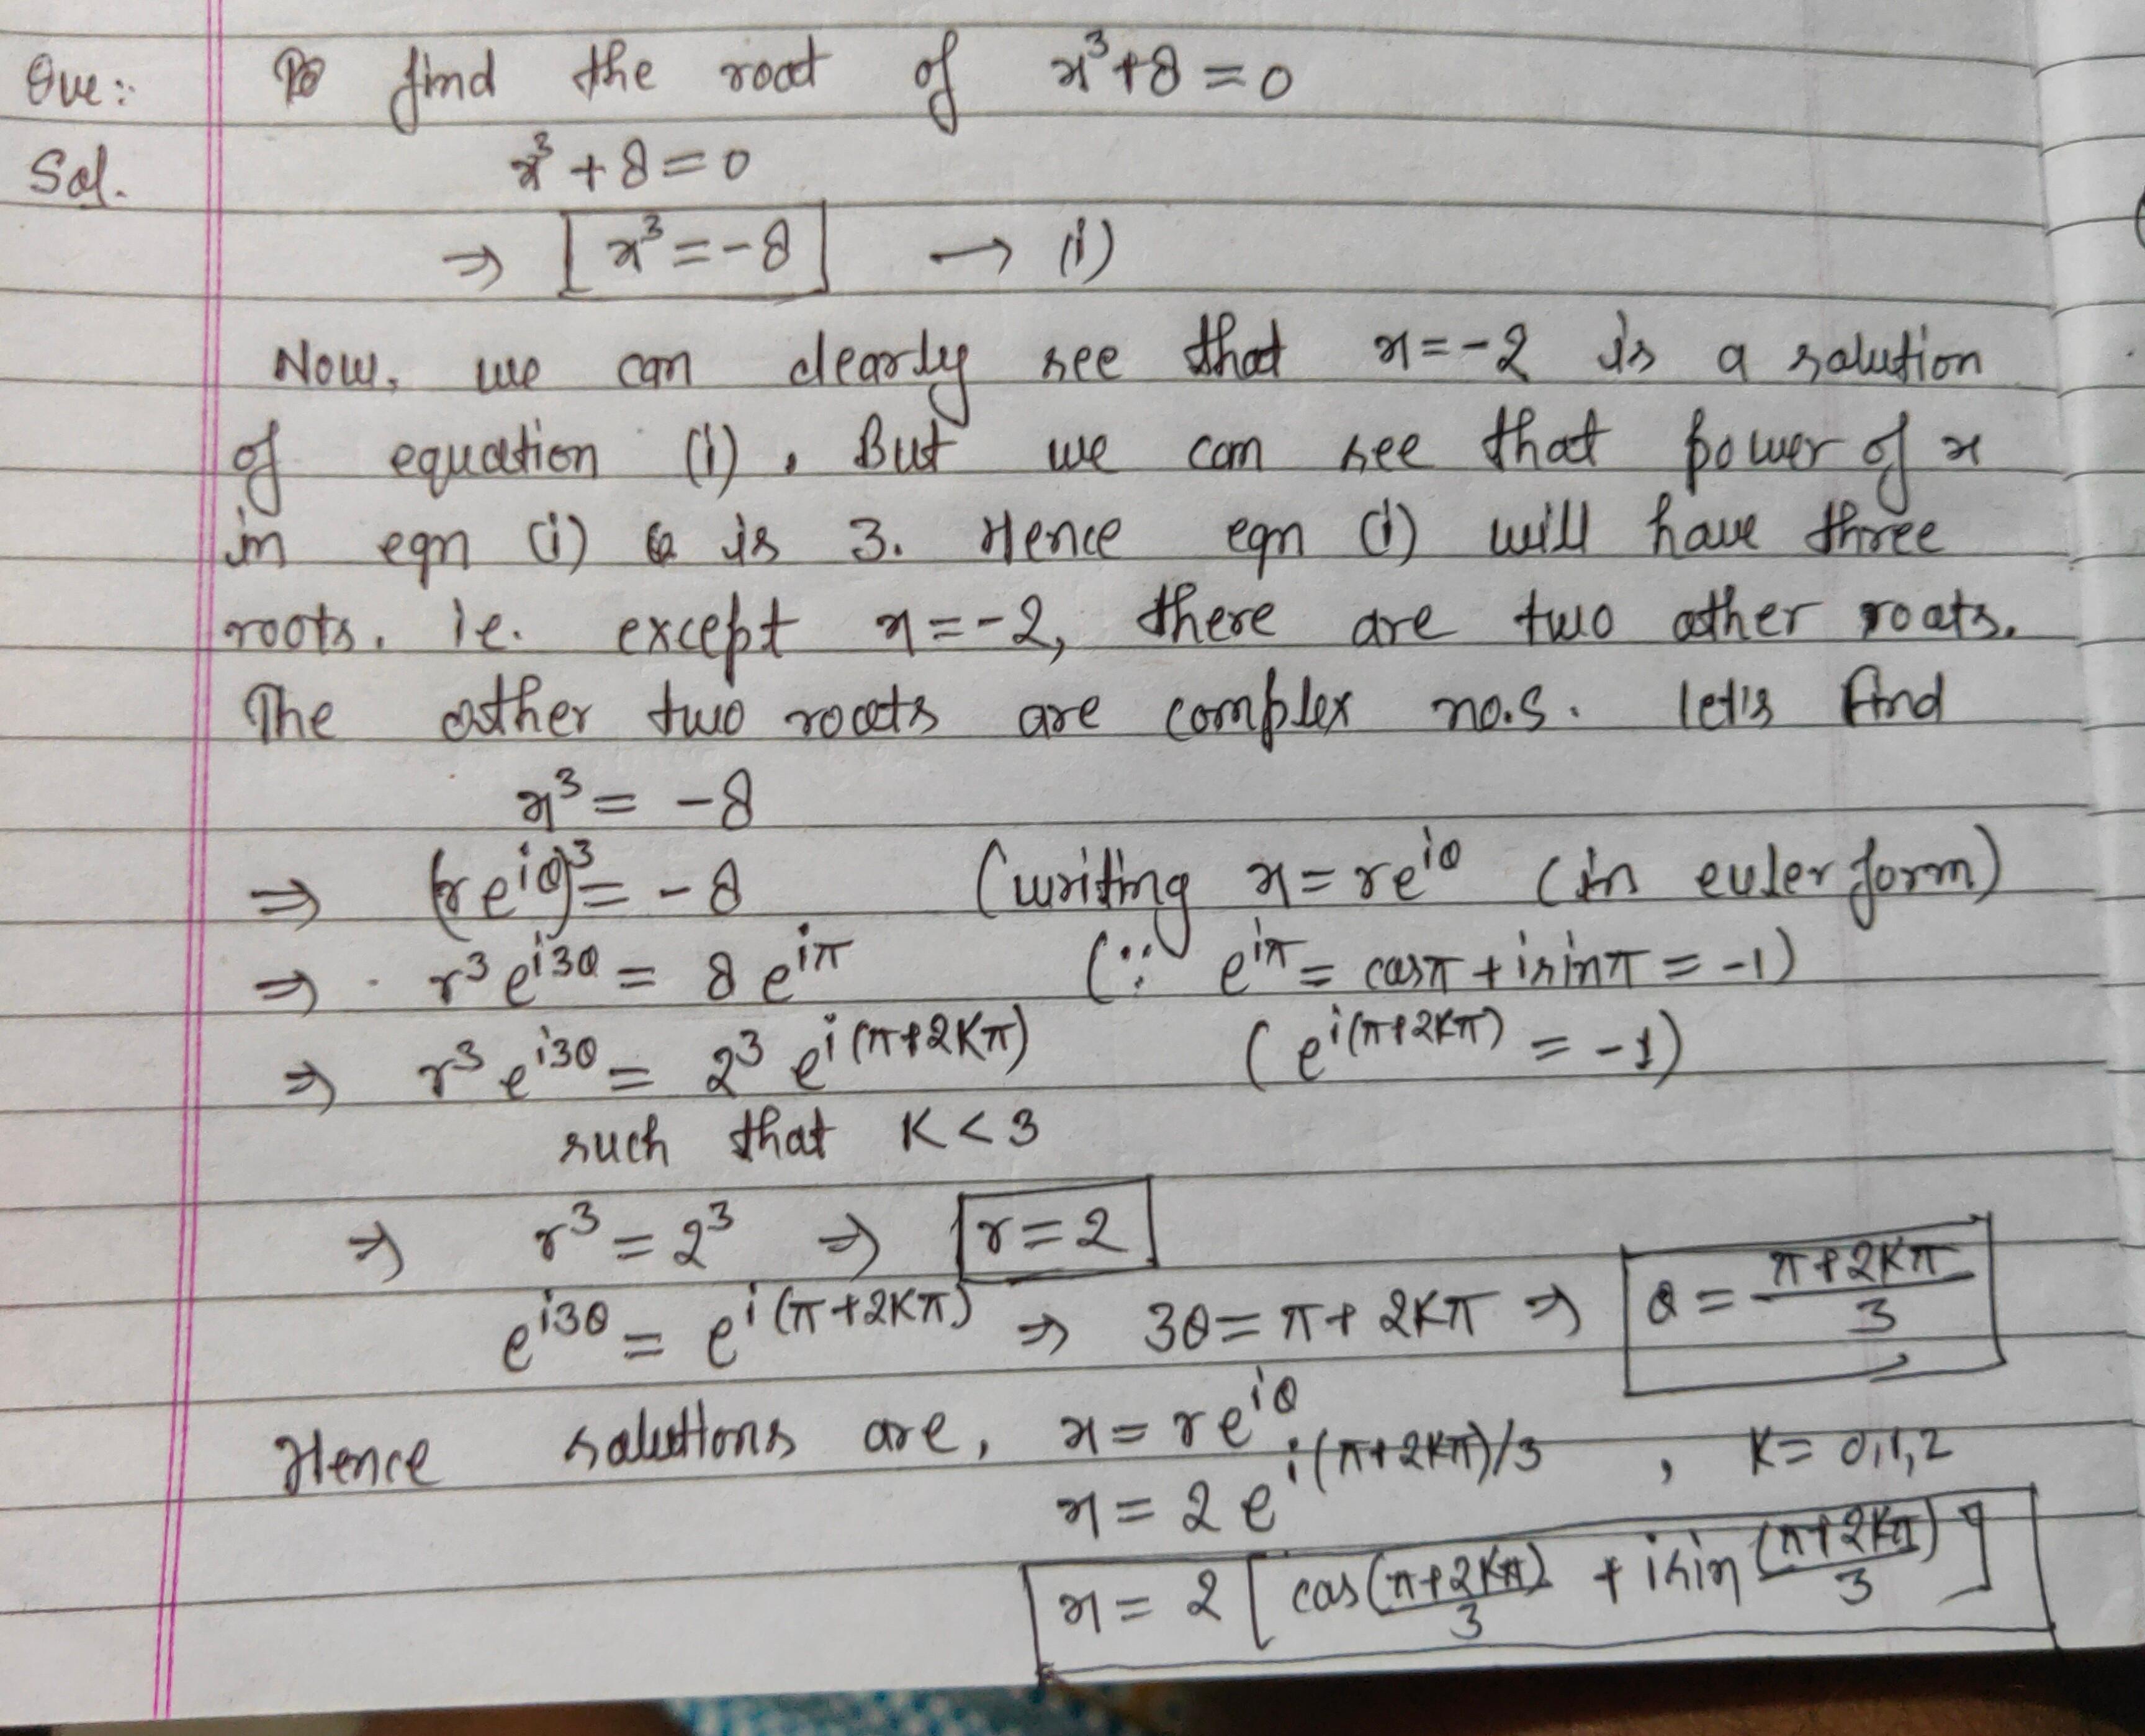 Que:- To find the root of x³+8=0
Sol. x³+8=0
⇒ x³=-8 → (i)
Now, we can clearly see that x=-2 is a solution
of equation (i), But we can see that power of x
in eqn (i) is 3. Hence eqn (i) will have three
roots. ie. except x=-2, there are two other roots.
The other two roots are complex no.s. let's find
x³ = -8
⇒ (re^{iθ})³ = -8 (writing x=re^{iθ} (in euler form)
⇒ r³e^{i3θ} = 8e^{iπ} (∵ e^{iπ} = cosπ+isinπ = -1)
⇒ r³e^{i3θ} = 2³ e^{i(π+2Kπ)} (e^{i(π+2Kπ)} = -1)
such that K<3
⇒ r³ = 2³ ⇒ r=2
e^{i3θ} = e^{i(π+2Kπ)} ⇒ 3θ=π+2Kπ ⇒ θ = (π+2Kπ)/3
Hence solutions are, x=re^{iθ}
x=2e^{i(π+2Kπ)/3} , K= 0,1,2
x = 2[cos(π+2Kπ)/3 + isin(π+2Kπ)/3]